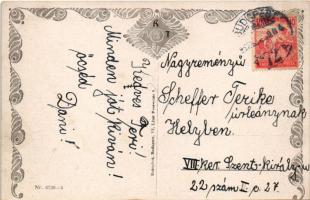 Kedves Teri!
Minden jót kíván!
öcséd
Djani!
Nagyreményű
Scheffer Terike
úrleánynak
Helyben.
VIII. ker. Szent-király-u
22 szám I. e. 27.